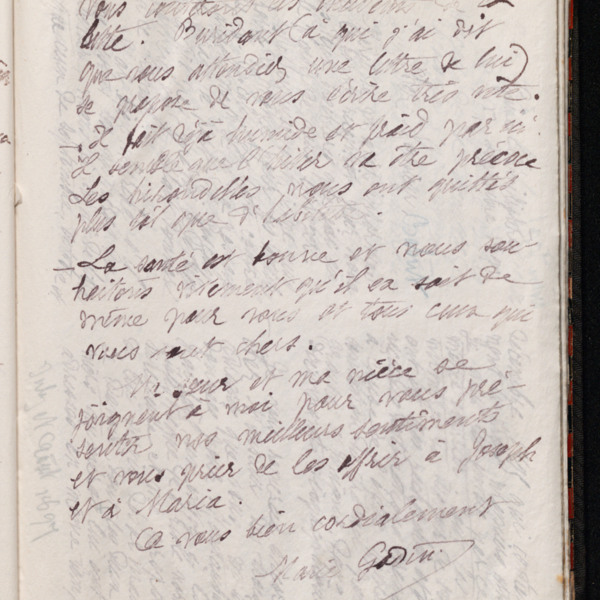 vous
lettre. Buridant (à qui j'ai dit
que vous attendiez une lettre de lui)
se propose de vous écrire très vite.
– Il fait déjà humide et froid par ici.
Il semble que l'hiver va être précoce
Les hirondelles nous ont quittés
plus tôt que d'habitude.
– La santé est bonne et nous sou-
haitons vivement qu'il en soit de
même pour vous et tous ceux qui
vous sont chers.
Ma sœur et ma nièce se
joignent à moi pour vous pré-
senter nos meilleurs sentiments
et vous prier de les offrir à Joseph
et à Maria.
A vous bien cordialement
Marie Godin